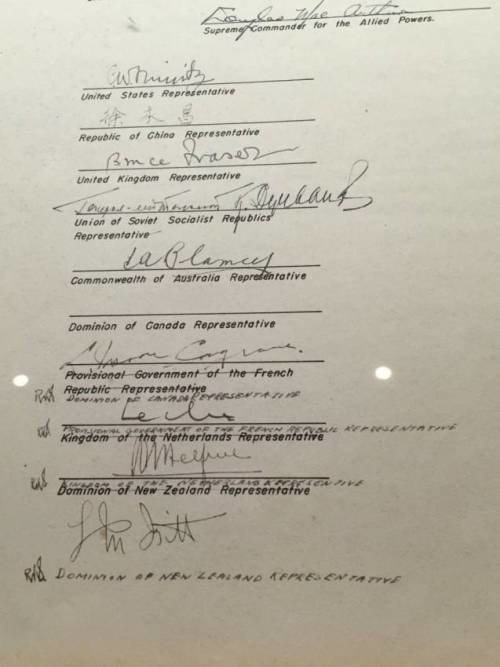 Douglas MacArthur
Supreme Commander for the Allied Powers.
C.W. Nimitz
United States Representative
徐永昌
Republic of China Representative
Bruce Fraser
United Kingdom Representative
Union of Soviet Socialist Republics
Representative
T.A. Blamey
Commonwealth of Australia Representative
Dominion of Canada Representative
L. Moore Cosgrave.
Provisional Government of the French
Republic Representative
DOMINION OF CANADA REPRESENTATIVE
Leclerc
PROVISIONAL GOVERNMENT OF THE FRENCH REPUBLIC REPRESENTATIVE
Kingdom of the Netherlands Representative
Helfrich
KINGDOM OF THE NETHERLAND REPRESENTATIVE
Dominion of New Zealand Representative
L M Isitt
DOMINION OF NEW ZEALAND REPRESENTATIVE